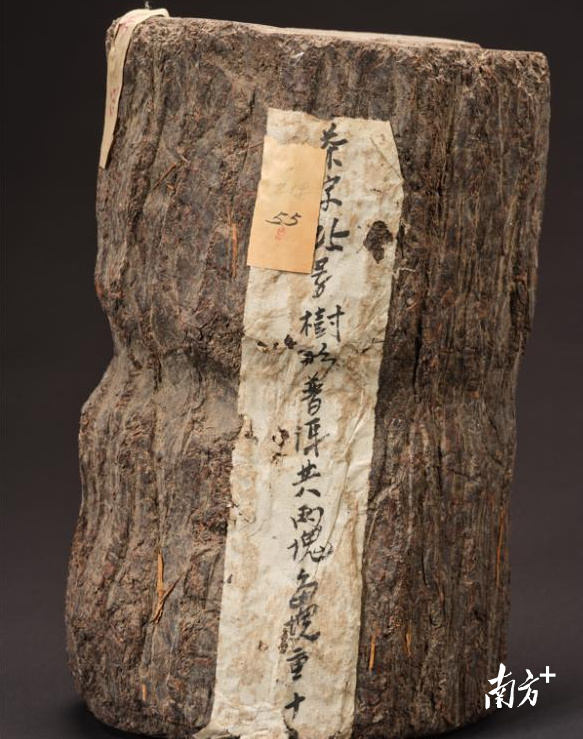 茶字号樹形普洱共兩塊每塊重十
55
南方+